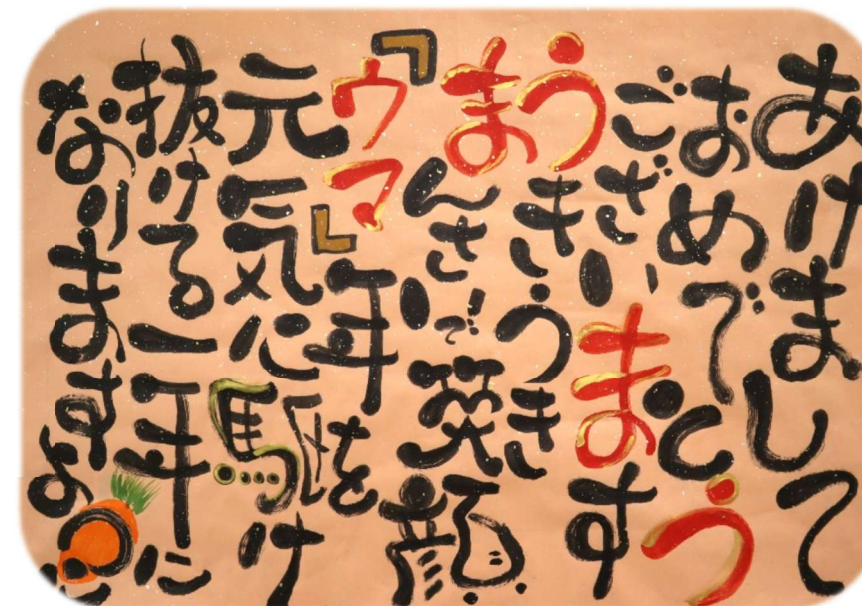 あけまして
おめでとう
ございます
うきうき
まんさいで笑顔
『ウマ』年を
元気に駆け
抜ける一年に
なりますように